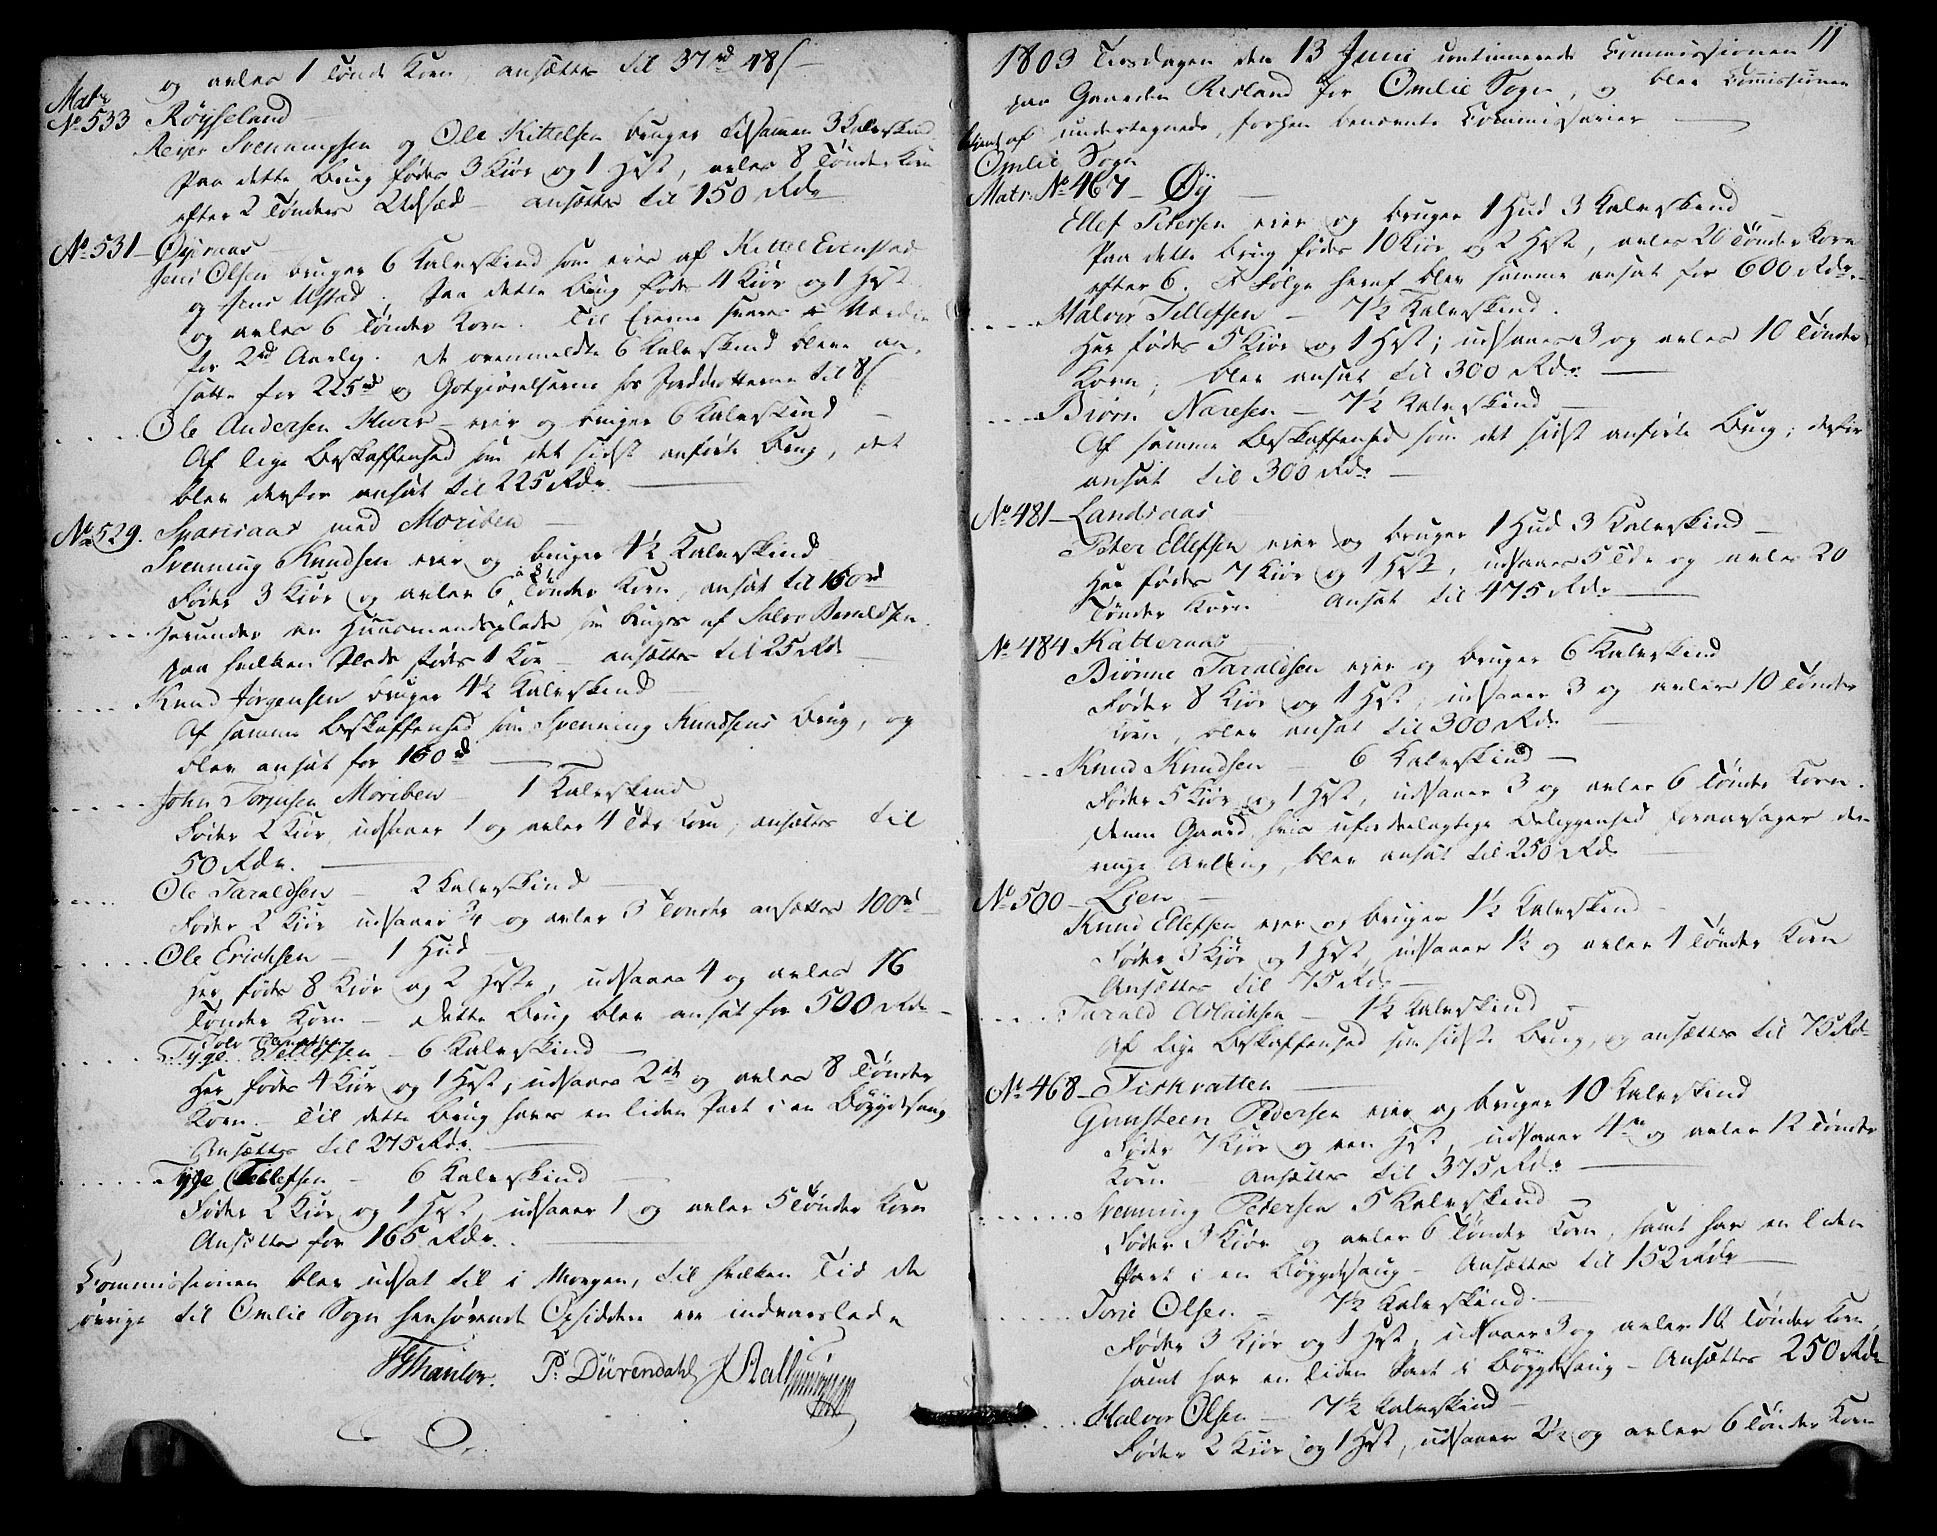 og avler 1 Tønde Korn ansættes til 37 rd 48 s
Matr
No 533 Røysseland
Reyer Svennungsen og Ole Kittelsen bruger tilsamen 3 Kalvskind
Paa dette Brug fødes 3 Kiør og 1 Hest, avles 8 Tønder Korn
efter 2 Tønders Udsæd - ansættes til 150 Rdr
No 531 - Øyenaas
Jens Olsen bruger 6 Kalvskind som eies af Kittel Evenstad
og Jens Ustad. Paa dette Brug fødes 4 Kiør og 1 Hest
og avles 6 Tønder Korn. Til Eierne svares
for 2 rd Aarlig. De ovenmeldte 6 Kalvskind bleve an-
satte for 225 rd og Godtgiørelserne hos Jorddrotterne til 8 s
Ole Andersen - eier og bruger 6 Kalvskind -
Af lige Beskaffenhed som det sidst anførte Brug, det
blev derfor ansat til 225 Rdr.
No 529. med Moriben -
Svenning Knudsen eier og bruger 4½ Kalvskind
Føder 3 Kiør og avler 6 a 8 Tønder Korn, ansat til 160 rd
Herunder en Huusmandsplads som bruges af
paa hvilken Plads fødes 1 Koe - ansættes til 25 Rd
Knud Jørgensen bruger 4½ Kalvskind -
Af samme Beskaffenhed som Svenning Knudsens Brug, og
blev ansat for 160 rd
John Torjusen Moriben - 1 Kalvskind
Føder 2 Kiør, udsaaer 1 og avler 4 Tdr Korn, ansættes til
50 Rdr.
Ole Taraldsen - 2 Kalvskind
Føder 2 Kiør udsaaer ¾ og avler 3 Tønder ansættes 100 rd
Ole Erichsen - 1 Hud -
Her fødes 8 Kiør og 2 Heste, udsaaes 4 og avles 16
Tønder Korn - Dette Brug blev ansat for 500 Rdr -
Tyge Tellefsen - 6 Kalvskind -
Her fødes 4 Kiør og 1 Hest, udsaaes 2 og avles 8 Tønder
Korn - Til dette Brug haves en liden Part i en Bøygdesaug
Ansættes til 275 Rdr.
Tyge Tellefsen - 6 Kalvskind -
Føder 2 Kiør og 1 Hest, udsaaer 1 og avler 5 Tønder Korn
Ansættes for 165 Rdr.
Commissionen blev udsat til i Morgen, til hvilken Tid de
øvrige til Omlie Sogn henhørende Opsiddere ere indvarslede
Thaulow. P. Dürendahl J Aall
11
1803 Tirsdagen den 13 Juni continuerede Commissionen
paa Gaarden Risland for Omlie Sogn, og blev Commissionen
betient af undertegnede, forhen benævnte Commissarier
Omlie Sogn
Matr: No 467 - Øy -
Ellef Petersen eier og bruger 1 Hud 3 Kalvskind -
Paa dette Brug fødes 10 Kiør og 2 Heste, avles 20 Tønder Korn
efter 6. I Følge heraf blev samme ansat for 600 Rdr. -
Halvor Tellefsen - 7½ Kalvskind.
Her fødes 5 Kiør og 1 Hest; udsaaes 3 og avles 10 Tønder
Korn, blev ansat til 300 Rdr.
Biørn - 7½ Kalvskind -
Af samme Beskaffenhed som det sidst anførte Brug; derfor
ansat til 300 Rdr -
No 481 - Landsaas -
Peter Ellefsen eier og bruger 1 Hud 3 Kalvskind -
Her fødes 7 Kiør og 1 Hest, udsaaes 5 Tdr og avles 20
Tønder Korn Ansat til 475 Rdr
No 484 Katteraas -
Biønne Taraldsen eier og bruger 6 Kalvskind
Føder 8 Kiør og 1 Hest, udsaaer 3 og avler 10 Tønder
Korn, blev ansat til 300 Rdr.
Knud Knudsen - 6 Kalvskind -
Føder 5 Kiør og 1 Hest, udsaaer 3 og avler 6 Tønder Korn.
Denne Gaard, hvis ufordeelagtige Beliggenhed foraarsager den
ringe Avling, blev ansat til 250 Rd
No 500 - Lien -
Knud Ellefsen eier og bruger 1½ Kalvskind -
Føder 3 Kiør og 1 Hest, udsaaer 1½ og avler 4 Tønder Korn
Ansættes til 75 Rdr -
Tarald Aslachsen - 1½ Kalvskind -
Af lige Beskaffenhed som sidste Brug, og ansættes til 75 Rdr
No 468 - Fiskvatten
Gunsteen Pedersen eier og bruger 10 Kalvskind
Føder 7 Kiør og een Hest, udsaaer 4 og avler 12 Tønder
Korn - ansættes til 375 Rdr.
Svenning Petersen 5 Kalvskind -
Føder 3 Kiør og avler 6 Tønder Korn, samt har en liden
Part i en Bøygdesaug - Ansættes til 152 Rdr
Torie Olsen - 7½ Kalvskind -
Føder 3 Kiør og 1 Hest, udsaaer 3 og avler 10 Tønder Korn,
samt har en liden Part i Bøygdesaug - Ansættes 250 Rdr
Halvor Olsen - 7½ Kalvskind -
Føder 2 Kiør og 1 Hest, udsaaer 2½ og avler 6 Tønder Korn